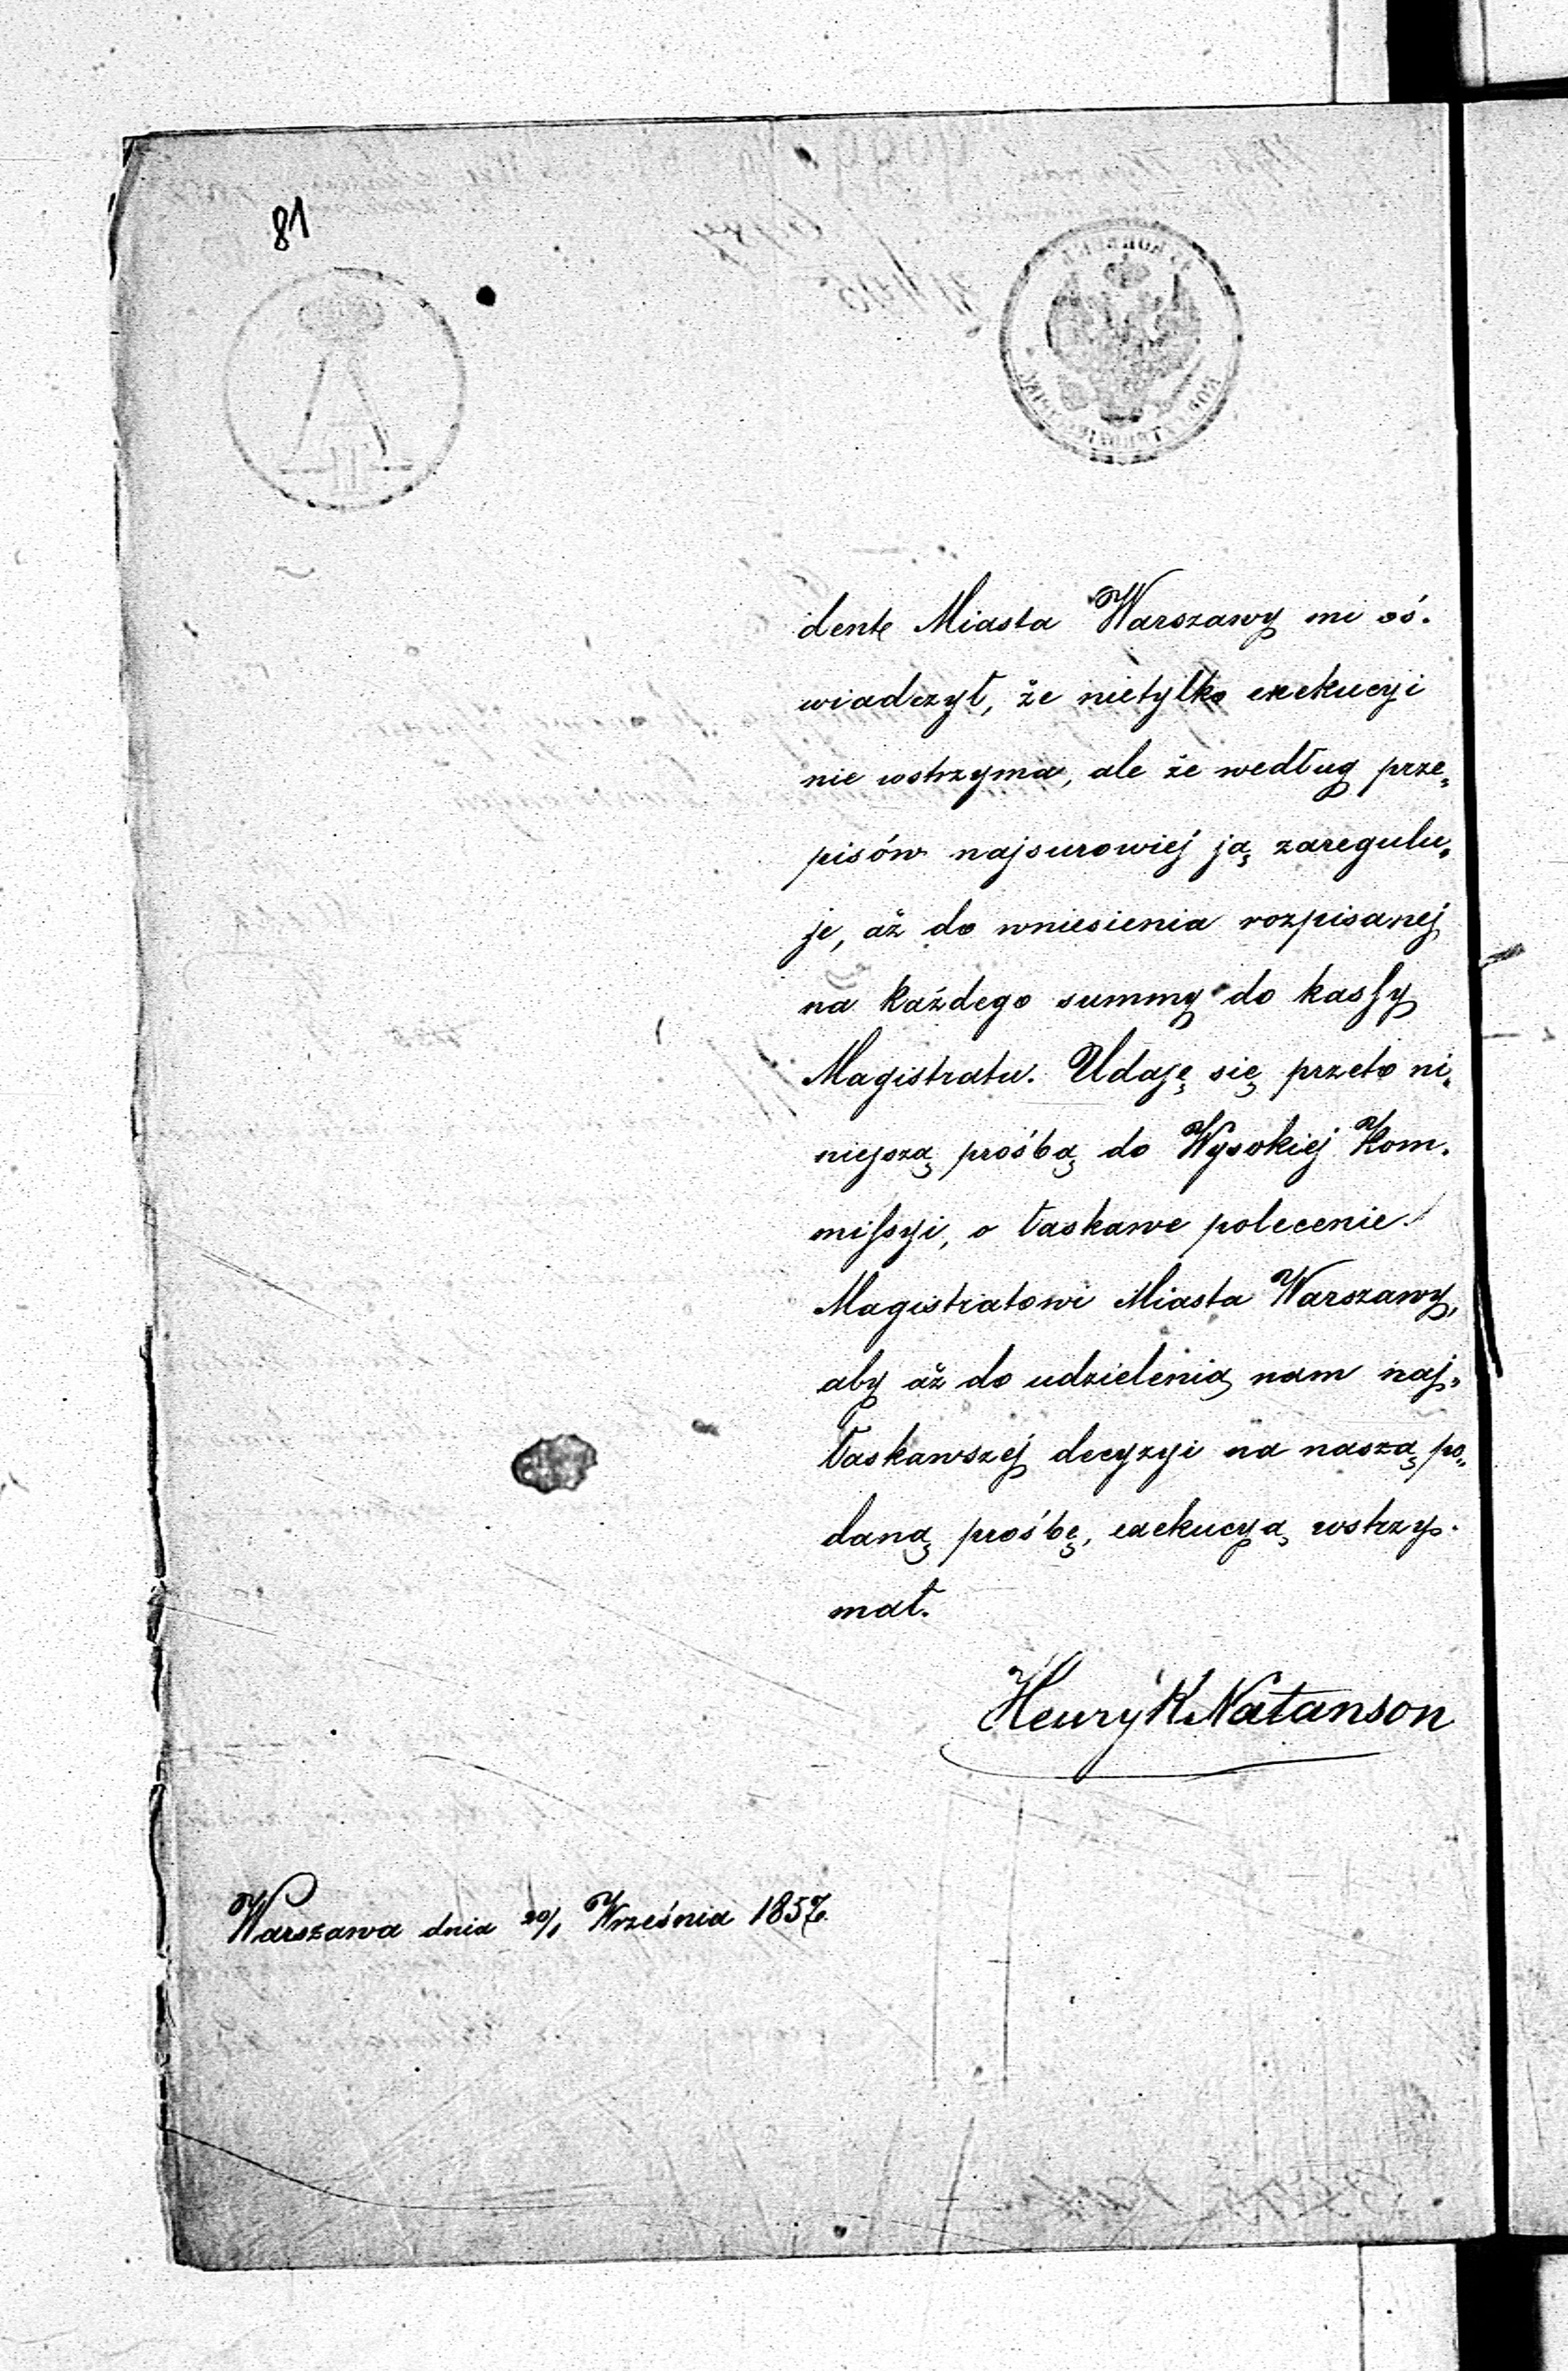 81
dent Miasta Warszawy mi oś.
wiadczył, że nietylko exekucyi
nie wstrzyma, ale że według prze„
pisów najsurowiej ją zaregulu„
je, aż do wniesienia rozpisanej
na każdego summy do kassy
Magistratu. Udaję się przeto ni„
niejszą prośbą do Wysokiej Kom.
missyi, o łaskawe polecenie
Magistratowi Miasta Warszawy,
aby aż do udzielenia nam naj„
łaskawszej decyzyi na naszą po„
daną prośbę, exekucyą wstrzy.
mał.
Henryk Natanson
Warszawa dnia Września 1857.